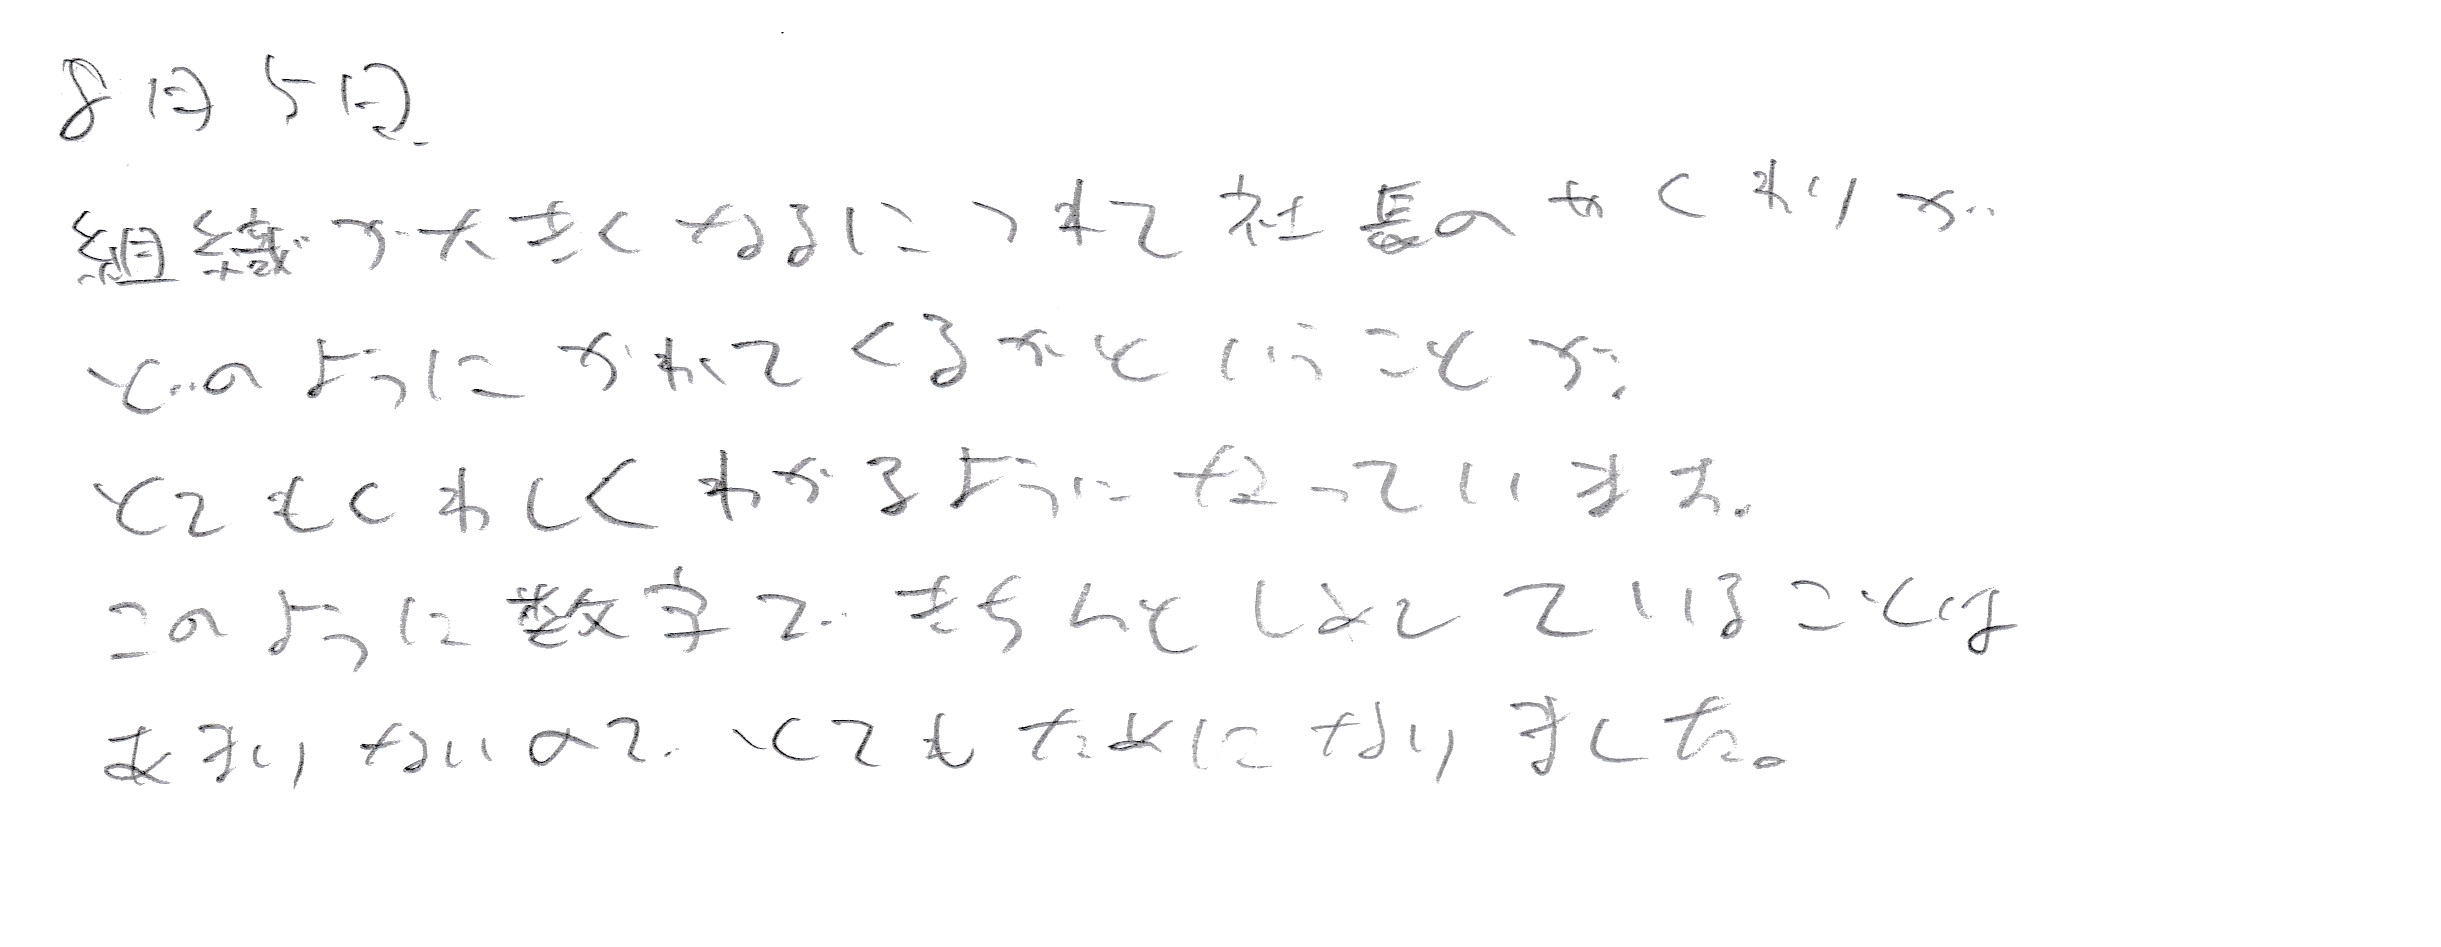 8月5日
組織が大きくなるにつれて社長のやくわりが
どのようにかわってくるかということが、
とてもくわしくわかるようになっています。
このように数字できちんとしめしていることは
あまりないのでとてもためになりました。